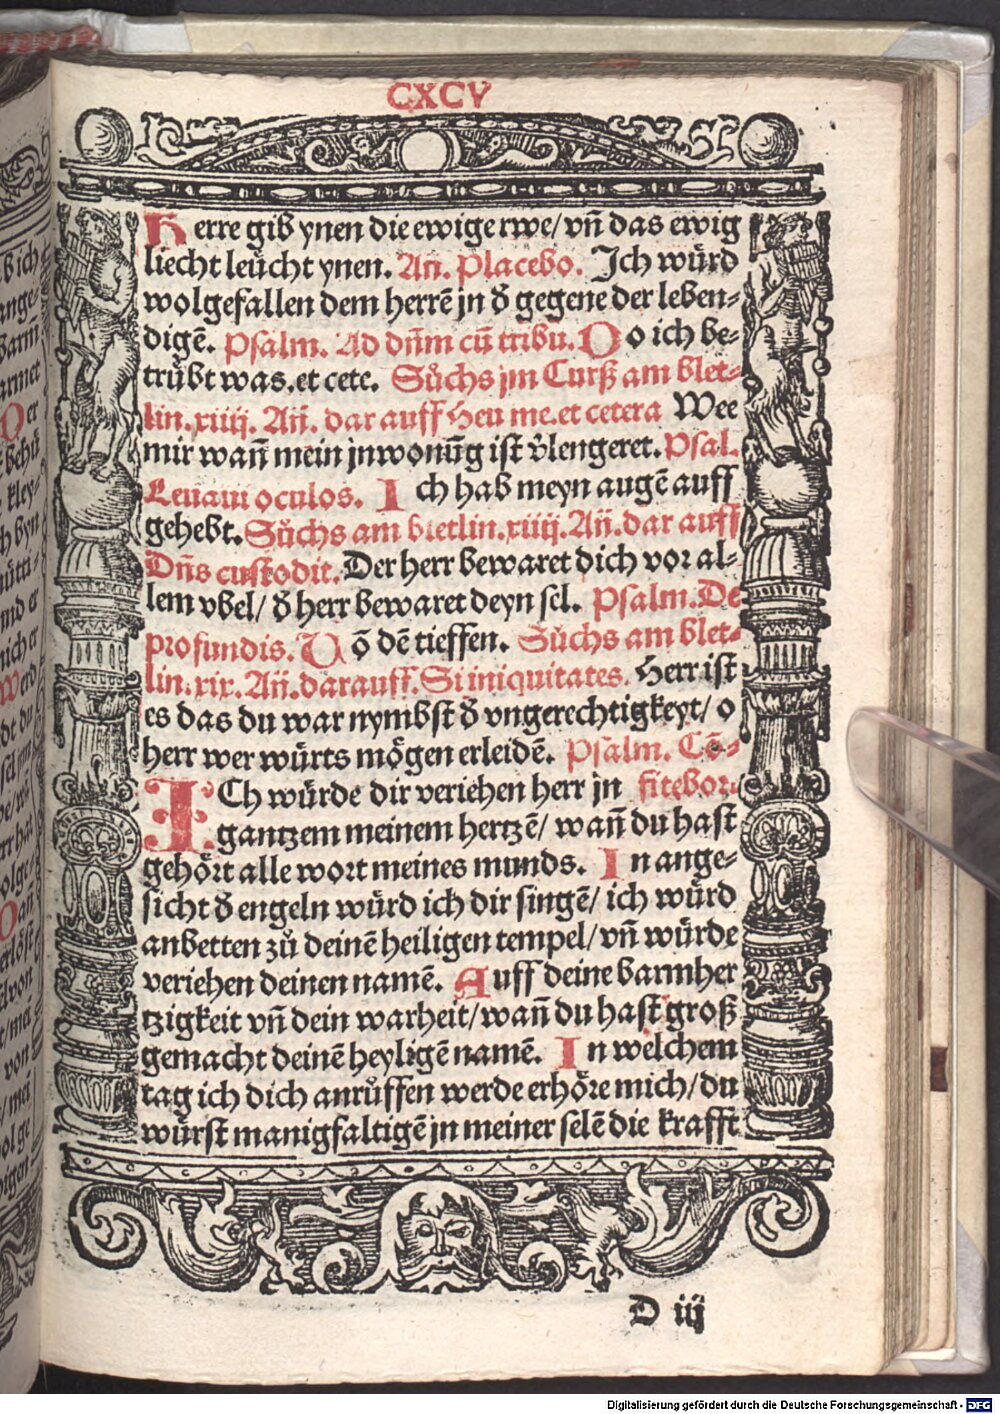 CXCV
Herre gib ynen die ewige rwe/ vñ das ewig
liecht leücht ynen. Añ. Placebo. Ich würd
wolgefallen dem herrē jn d̄ gegene der leben-
digē. Psalm. Ad dñm cū tribu. Do ich be-
trübt was. et cete. Sůchs jm Curß am blet-
lin. xiiij. Añ. dar auff Heu me. et cetera Wee
mir wañ mein jnwonūg ist v̄lengeret. Psal.
Leuaui oculos. Ich hab meyn augē auff
gehebt. Sůchs am bletlin. xiiij. Añ. dar auff
Dñs custodit. Der herr bewaret dich vor al-
lem vbel/ d̄ herr bewaret deyn sel. Psalm. De
profundis. Vō dē tieffen. Sůchs am blet-
lin. xix. Añ. darauff. Si iniquitates. Herr ist
es das du war nymbst d̄ vngerechtigkeyt/ o
herr wer würts mögen erleidē. Psalm. Cō-
ICh würde dir veriehen herr jn fitebor.
gantzem meinem hertzē/ wañ du hast
gehört alle wort meines munds. In ange-
sicht d̄ engeln würd ich dir singē/ ich würd
anbetten zů deinē heiligen tempel/ vñ würde
veriehen deinen namē. Auff deine barmher
tzigkeit vñ dein warheit/ wañ du hast groß
gemacht deinē heyligē namē. In welchem
tag ich dich anrůffen werde erhöre mich/ du
würst manigfaltigē jn meiner selē die krafft
D iij
Digitalisierung gefördert durch die Deutsche Forschungsgemeinschaft - DFG